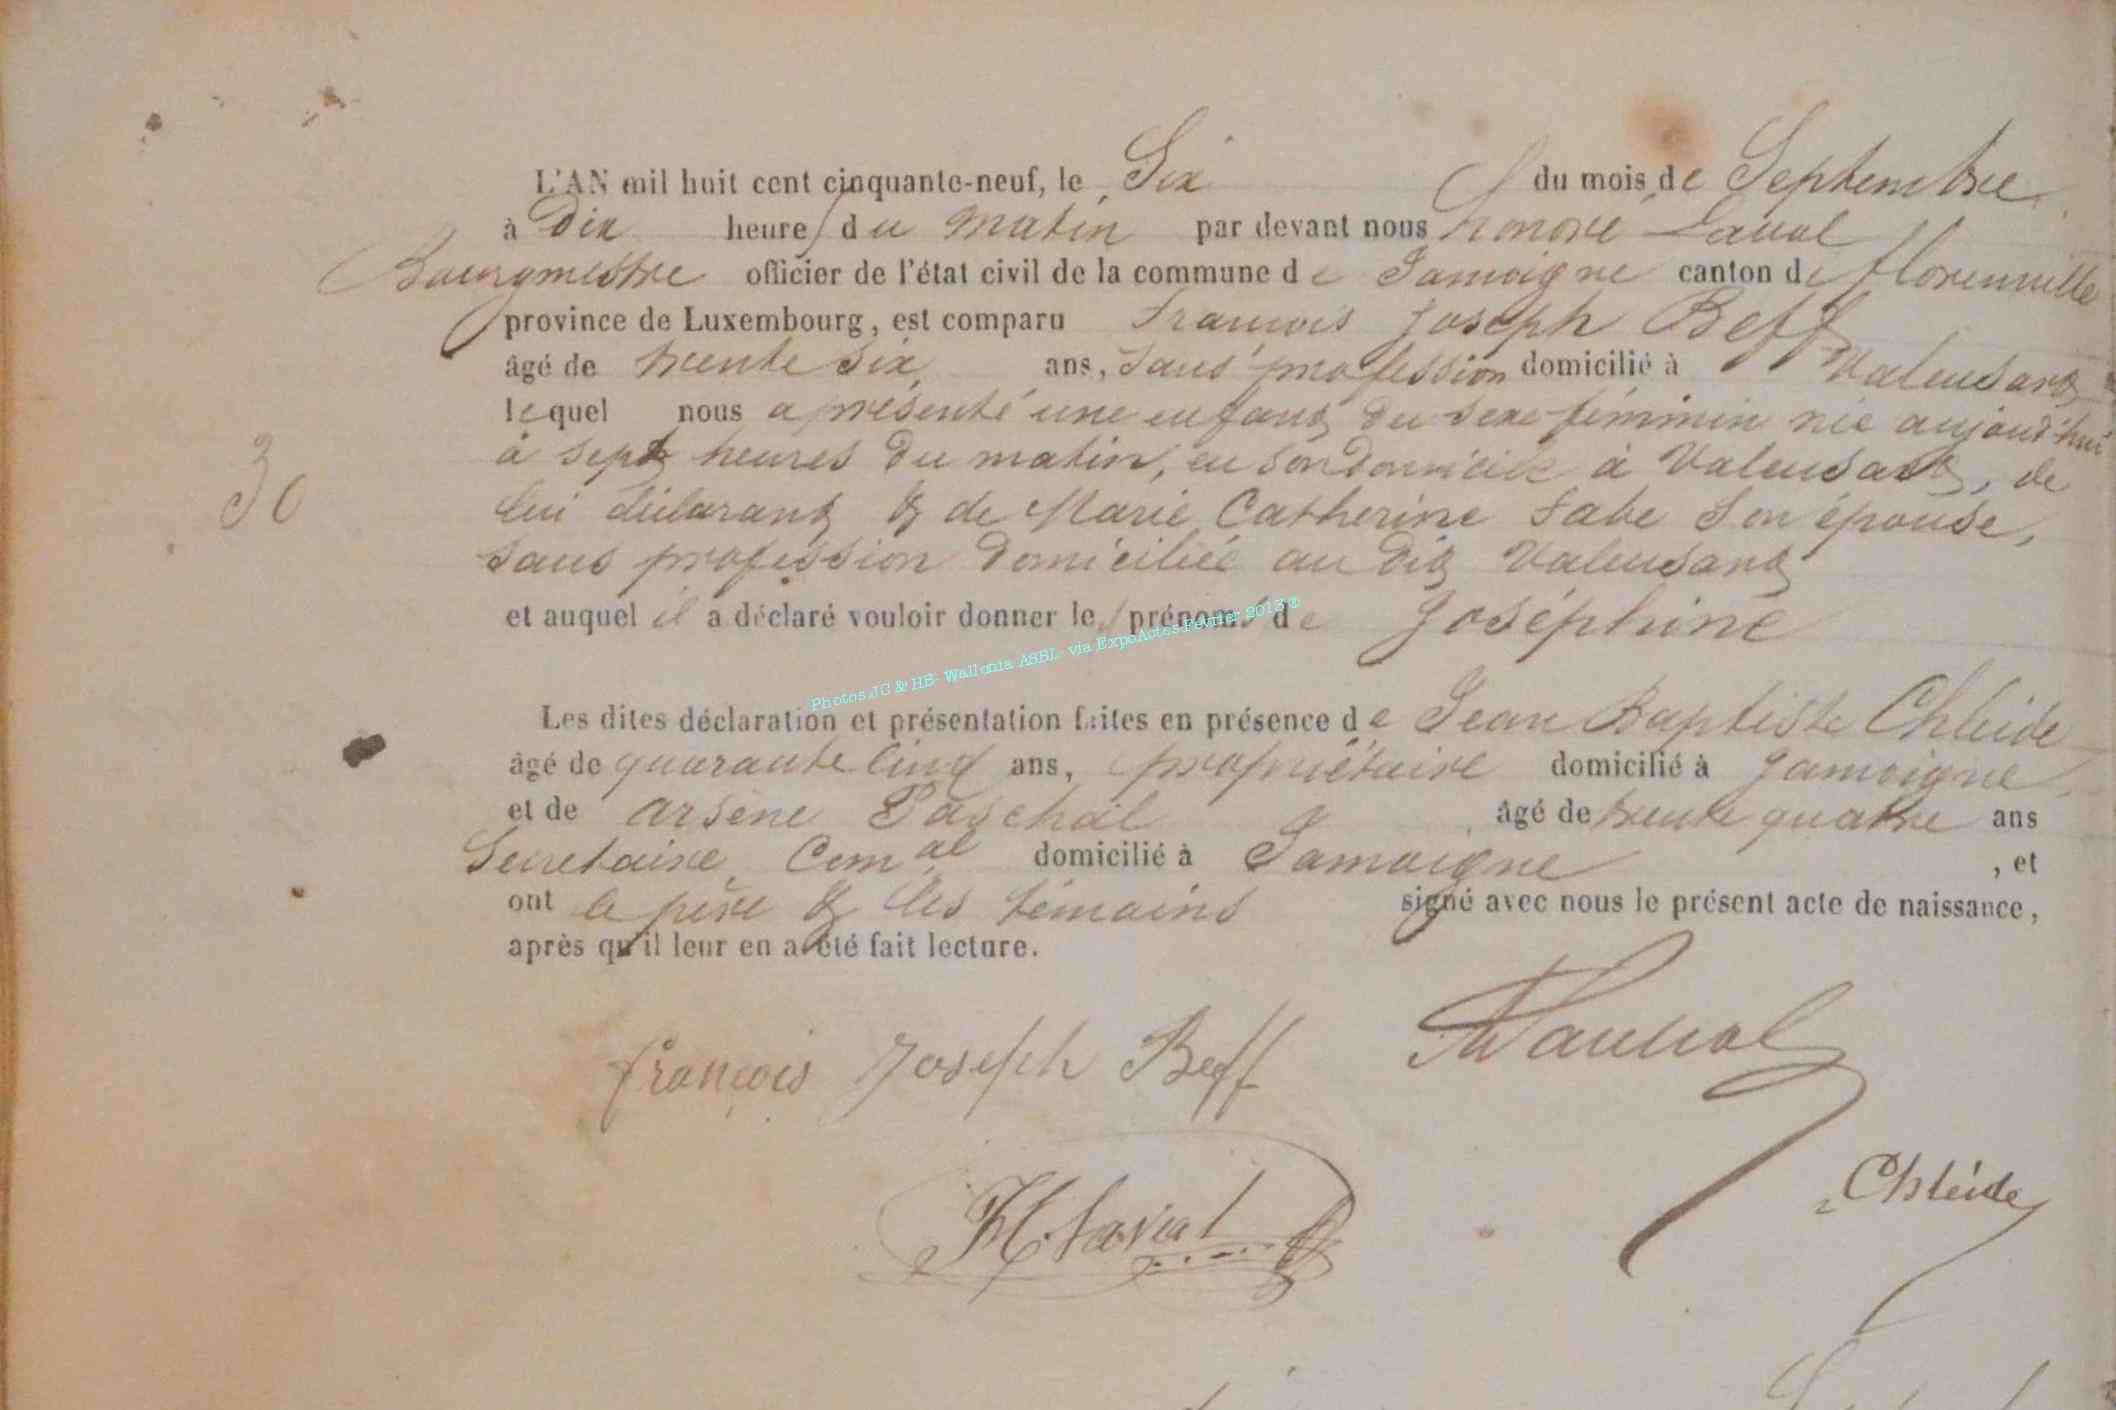 L'AN mil huit cent cinquante-neuf, le Six du mois de Septembre
à Dix heures du matin par devant nous honoré Laval
Bourgmestre officier de l'état civil de la commune de Jamoigne canton de florenville
province de Luxembourg, est comparu François Joseph Beff
âgé de trente six ans, sans profession domicilié à Valensart
lequel nous a présenté une enfant du sexe féminin née aujourd'hui
à sept heures du matin, en son domicile à Valensart, de
30
lui déclarant & de Marie Catherine Sabe son épouse,
sans profession domiciliée au dit Valensart
et auquel il a déclaré vouloir donner les prénoms de Joséphine
Photos JC & HB- Wallonia ASBL- via ExpoActes-Février 2013 ®
Les dites déclaration et présentation faites en présence de Jean Baptiste Chleide
âgé de quarante cinq ans, propriétaire domicilié à Jamoigne,
et de arsène Paschal âgé de trente quatre ans
Secretaire Com.al domicilié à Jamoigne , et
ont le père & les témoins signé avec nous le présent acte de naissance,
après qu'il leur en a été fait lecture.
françois Joseph Beff
Chleide
H Laval